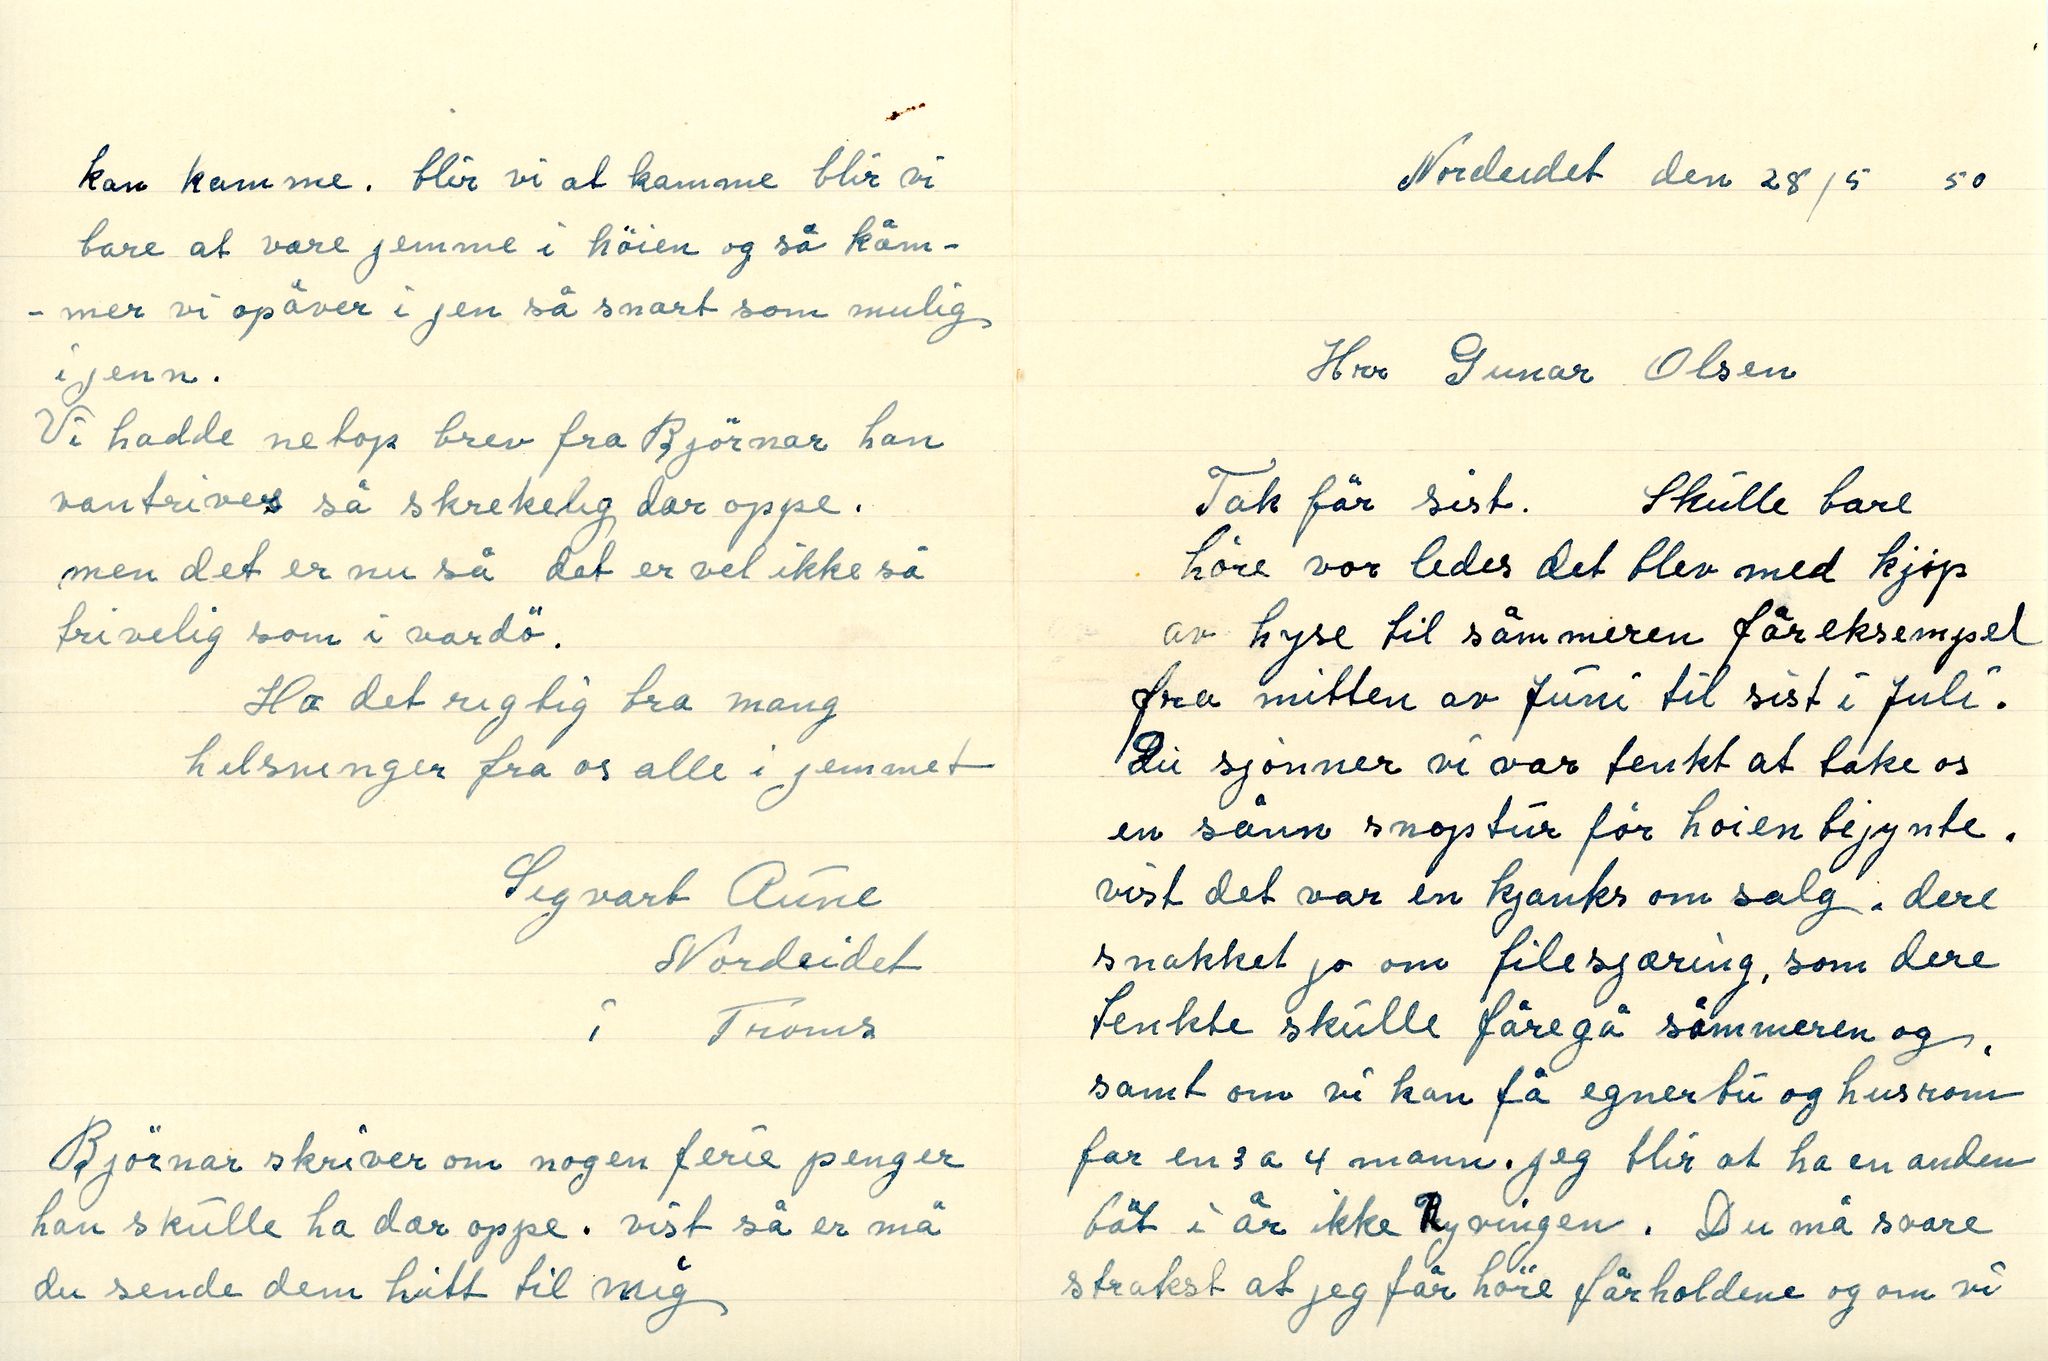 Nordeidet den 28/5 50
Hrr Gunar Olsen
Tak får sist. Skulle bare
höre vor ledes det blev med kjøp
av hyse til såmmeren fåreksempel
fra mitten av Juni til sist i Juli.
Du sjönner vi var tenkt at take os
en sånn snoptur för hoien bejynte.
vist det var en kjanks om salg. dere
snakket jo om filesjæring, som dere
tenkte skulle fåregå såmmeren og,
samt om vi kan få egnerbu og husrom
far en 3 a 4 mann. jeg blir at ha en anden
båt i år ikke Ryvingen. Du må svare
strakst at jeg får höre fårholdene og om vi
kan kamme. blir vi at kamme blir vi
bare at være jemme i höien og så kåm-
- mer vi opåver i jen så snart som mulig
i jenn.
Vi hadde netop brev fra Björnar han
vantrives så skrekelig dar oppe.
men det er nu så det er vel ikke så
trivelig som i vardö.
Ha det rigtig bra mang
helsninger fra os alle i jemmet
Segvart Aune
Nordeidet
i Troms
Björnar skriver om nogen ferie penger
han skulle ha dær oppe. vist så er må
du sende dem hitt til mig